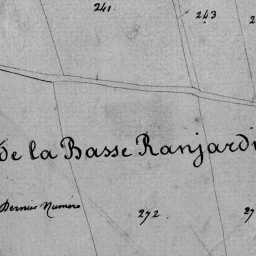 241
243
de la Basse Ranjardi
Dernier Numero
272
27